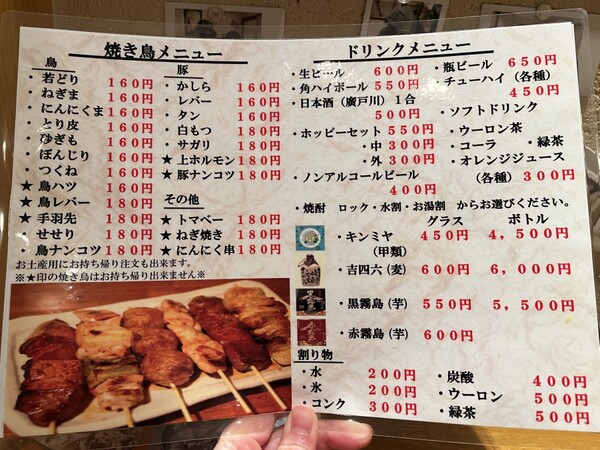 焼き鳥メニュー
鳥
・若どり 160円
・ねぎま 160円
・にんにくま 160円
・とり皮 160円
・砂ぎも 160円
・ぼんじり 160円
・つくね 160円
★鳥ハツ 180円
★鳥レバー 180円
★手羽先 180円
・せせり 180円
・鳥ナンコツ 180円
豚
・かしら 160円
・レバー 160円
・タン 160円
・白もつ 180円
・サガリ 180円
★上ホルモン 180円
★豚ナンコツ 180円
その他
★トマベー 180円
★ねぎ焼き 180円
★にんにく串 180円
お土産用にお持ち帰り注文も出来ます。
※★印の焼き鳥はお持ち帰り出来ません※
ドリンクメニュー
・生ビール 600円
・角ハイボール 550円
・日本酒（廣戸川）１合
500円
・ホッピーセット 550円
・中 300円
・外 300円
・ノンアルコールビール
400円
・瓶ビール 650円
・チューハイ（各種）
450円
・ソフトドリンク
・ウーロン茶
・コーラ ・緑茶
・オレンジジュース
（各種）300円
・焼酎 ロック・水割・お湯割 からお選びください。
グラス ボトル
・キンミヤ 450円 4,500円
（甲類）
・吉四六（麦） 600円 6,000円
・黒霧島（芋） 550円 5,500円
・赤霧島（芋） 600円
割り物
・水 200円
・氷 200円
・コンク 300円
・炭酸 400円
・ウーロン 500円
・緑茶 500円